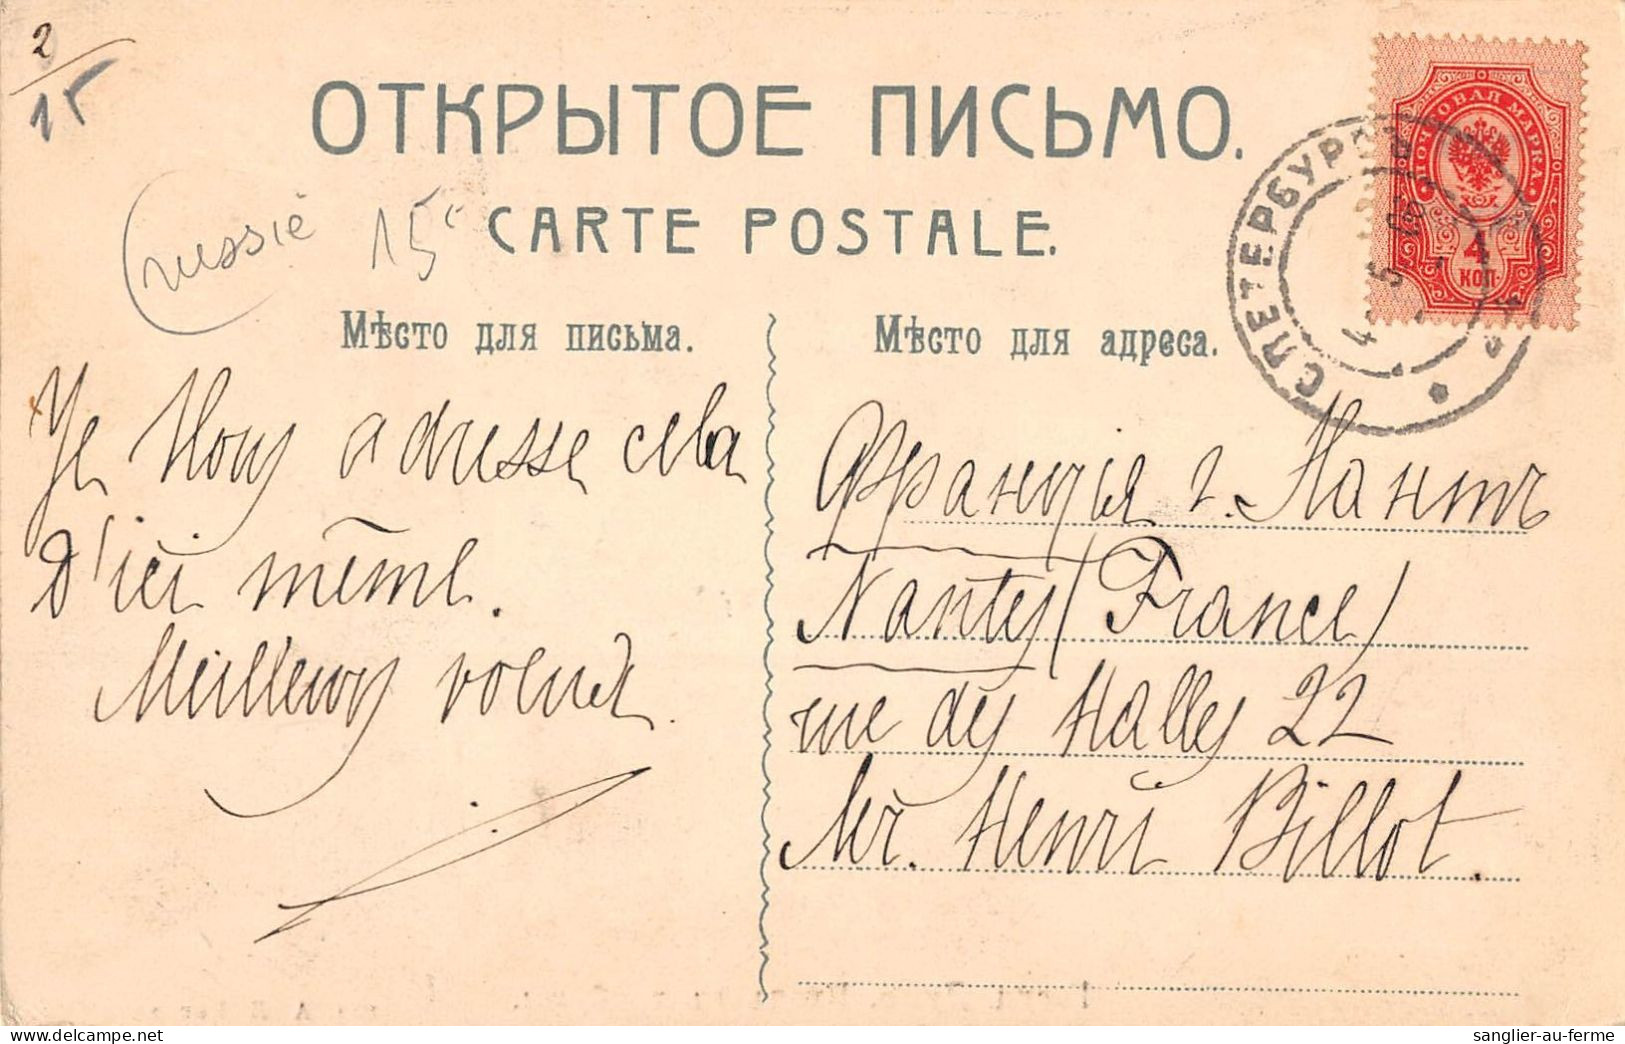 2
15
ОТКРЫТОЕ ПИСЬМО.
russie 15€
CARTE POSTALE.
ПОЧТОВАЯ МАРКА
4
КОП
СПЕТЕРБУРГЪ
Мѣсто для письма.
Мѣсто для адреса.
Je Vous adresse cela
d'ici même.
Meilleurs voeux.
Франція г. Нантъ
Nantes (France)
rue des Halles 22
Mr. Henri Billot.
sanglier-au-ferme